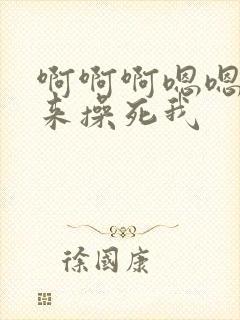 啊啊啊嗯嗯
来操死我
徐国康